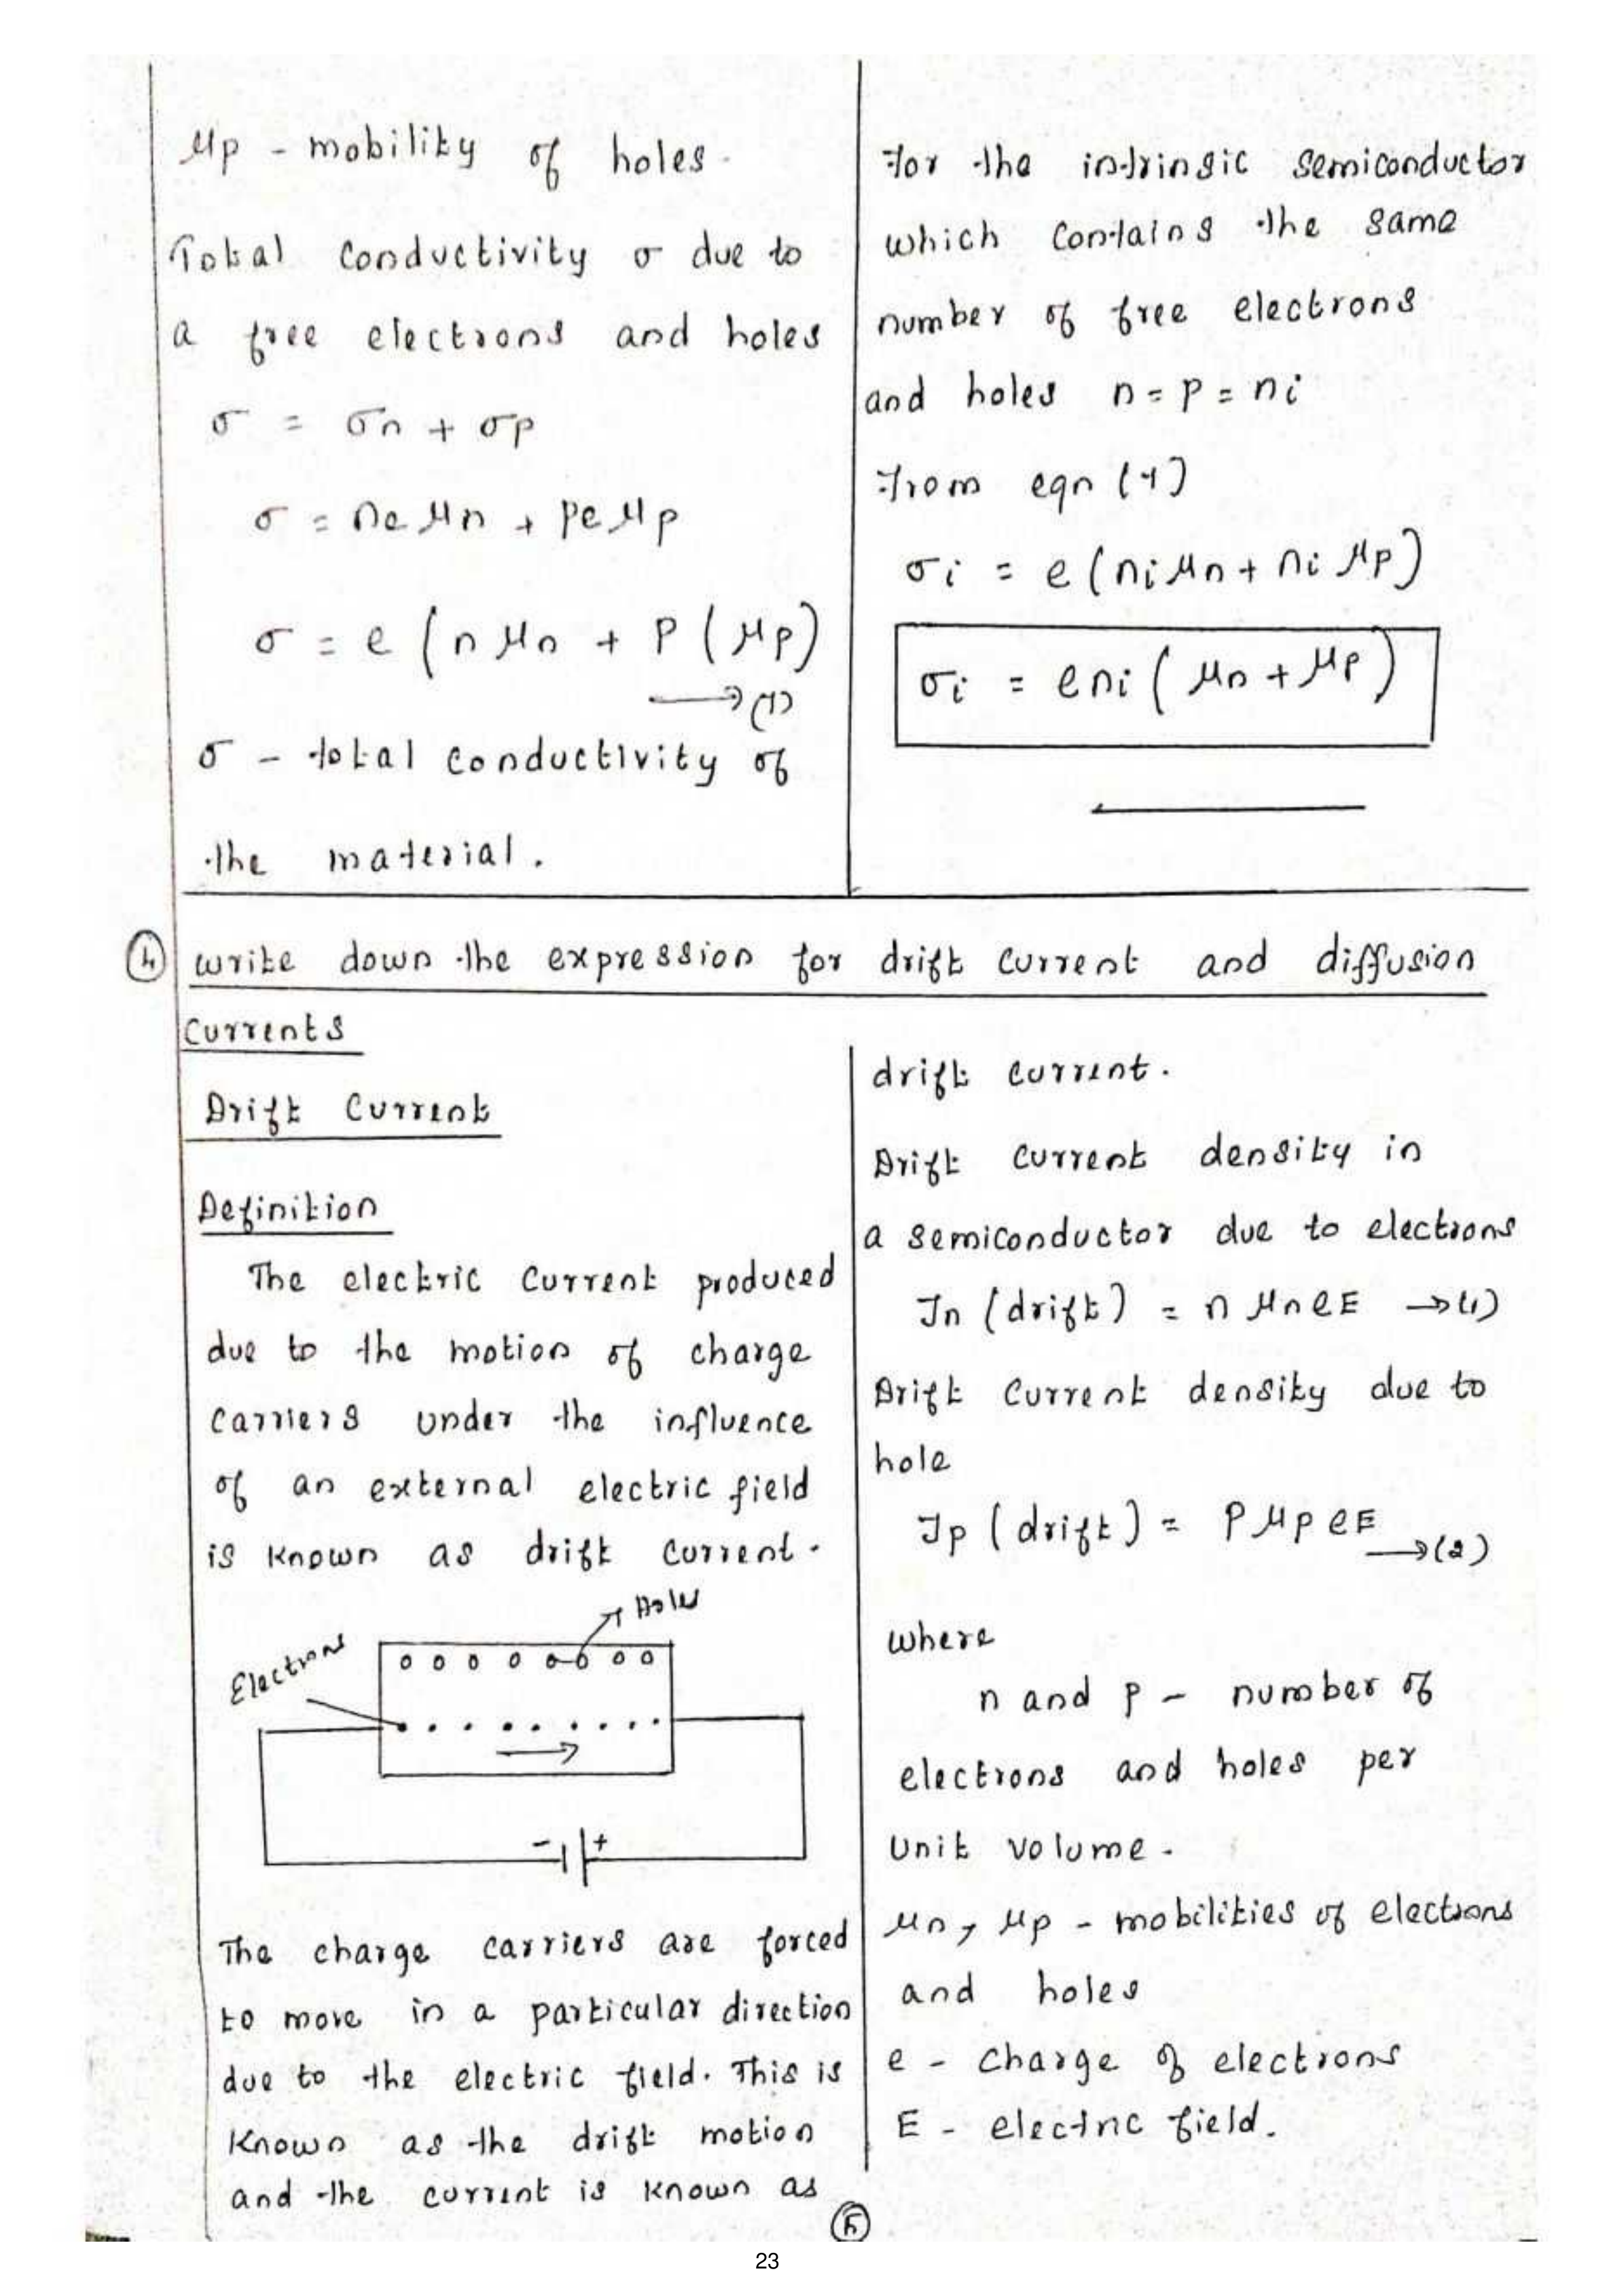 μp - mobility of holes.
Total conductivity σ due to
a free electrons and holes
σ = σn + σp
σ = neμn + peμp
σ = e (nμn + p(μp)
→(1)
σ - total conductivity of
the material.
For the intrinsic semiconductor
which contains the same
number of free electrons
and holes n = p = ni
From eqn (1)
σi = e(niμn + niμp)
σi = eni(μn + μp)
④ write down the expression for drift current and diffusion
Currents
Drift Current
Definition
The electric current produced
due to the motion of charge
carriers under the influence
of an external electric field
is known as drift current.
Holes
Electrons
- +
The charge carriers are forced
to move in a particular direction
due to the electric field. This is
known as the drift motion
and the current is known as
drift current.
Drift current density in
a semiconductor due to electrons
Jn (drift) = nμneE →(1)
Drift current density due to
hole
Jp (drift) = pμpeE →(2)
where
n and p - number of
electrons and holes per
unit volume.
μn, μp - mobilities of electrons
and holes
e - charge of electrons
E - electric field.
⑤
23